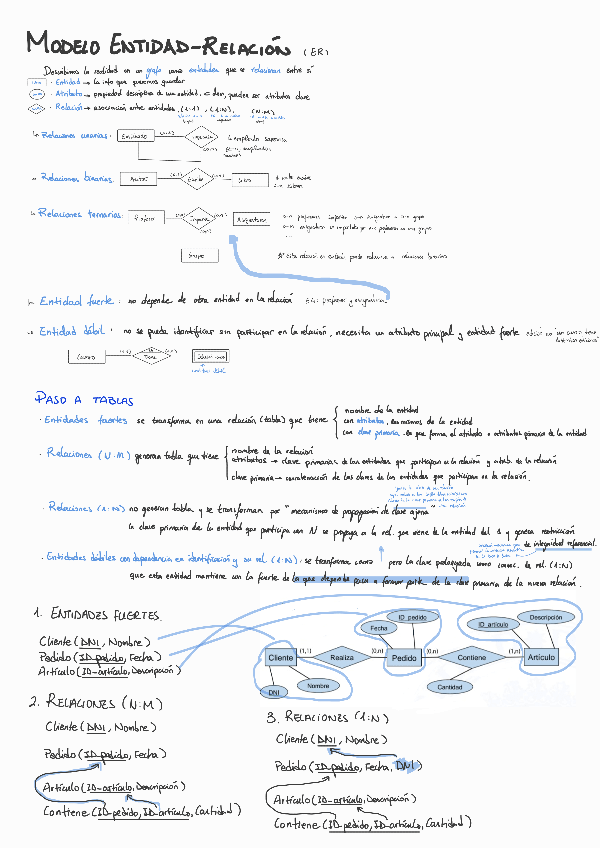 MODELO ENTIDAD-RELACIÓN (ER)
Describimos la realidad en un grafo como entidades que se relacionan entre sí
· Entidad → la info que queremos guardar
· Atributo → propiedad descriptiva de una entidad, pueden ser atributos clave
· Relación → asociación entre entidades, (1:1), (1:N), (N:M)
Relaciones unarias:
Relaciones binarias: Autor Escribe Libro
Relaciones ternarias: Profesor Imparte Asignatura
Grupo
Entidad fuerte: no depende de otra entidad en la relación
Entidad débil: no se puede identificar sin participar en la relación, necesita un atributo principal y entidad fuerte
Tiene
PASO A TABLAS
· Entidades fuertes se transforma en una relación (tabla) que tiene
nombre de la entidad
con atributos, los mismos de la entidad
con clave primaria, la que forma el atributo o atributos primaria de la entidad
· Relaciones (N:M) genera tabla que tiene
nombre de la relación
atributos → clave primarias de las entidades que participan en la relación y atrib. de la relación
clave primaria → concatenación de las claves de las entidades que participan en la relación.
· Relaciones (1:N) no generan tabla y se transforman por "mecanismo de propagación de clave ajena"
la clave primaria de la entidad que participa con N se propaga a la rel. que viene de la entidad del 1 y genera restricción
de integridad referencial.
· Entidades débiles con dependencia en identificación y su rel. (1:N): se transforma como pero la clave propagada como consec. la rel. (1:N)
que esta entidad mantiene con la fuerte de la que depende pasa a formar parte de la clave primaria de la nueva relación.
1. ENTIDADES FUERTES
Cliente (DNI, Nombre)
Pedido (ID_pedido, Fecha)
Artículo (ID_artículo, Descripción)
ID_pedido
Fecha
Descripción
ID_artículo
Cliente (1,1) Realiza (0,n) Pedido (0,n) Contiene (1,n) Artículo
DNI
Nombre
Cantidad
2. RELACIONES (N:M)
Cliente (DNI, Nombre)
Pedido (ID_pedido, Fecha)
Artículo (ID_artículo, Descripción)
Contiene (ID_pedido, ID_artículo, Cantidad)
3. RELACIONES (1:N)
Cliente (DNI, Nombre)
Pedido (ID_pedido, Fecha, DNI)
Artículo (ID_artículo, Descripción)
Contiene (ID_pedido, ID_artículo, Cantidad)